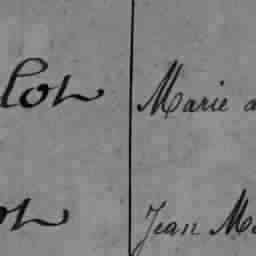 lot Marie a
ot Jean Ma